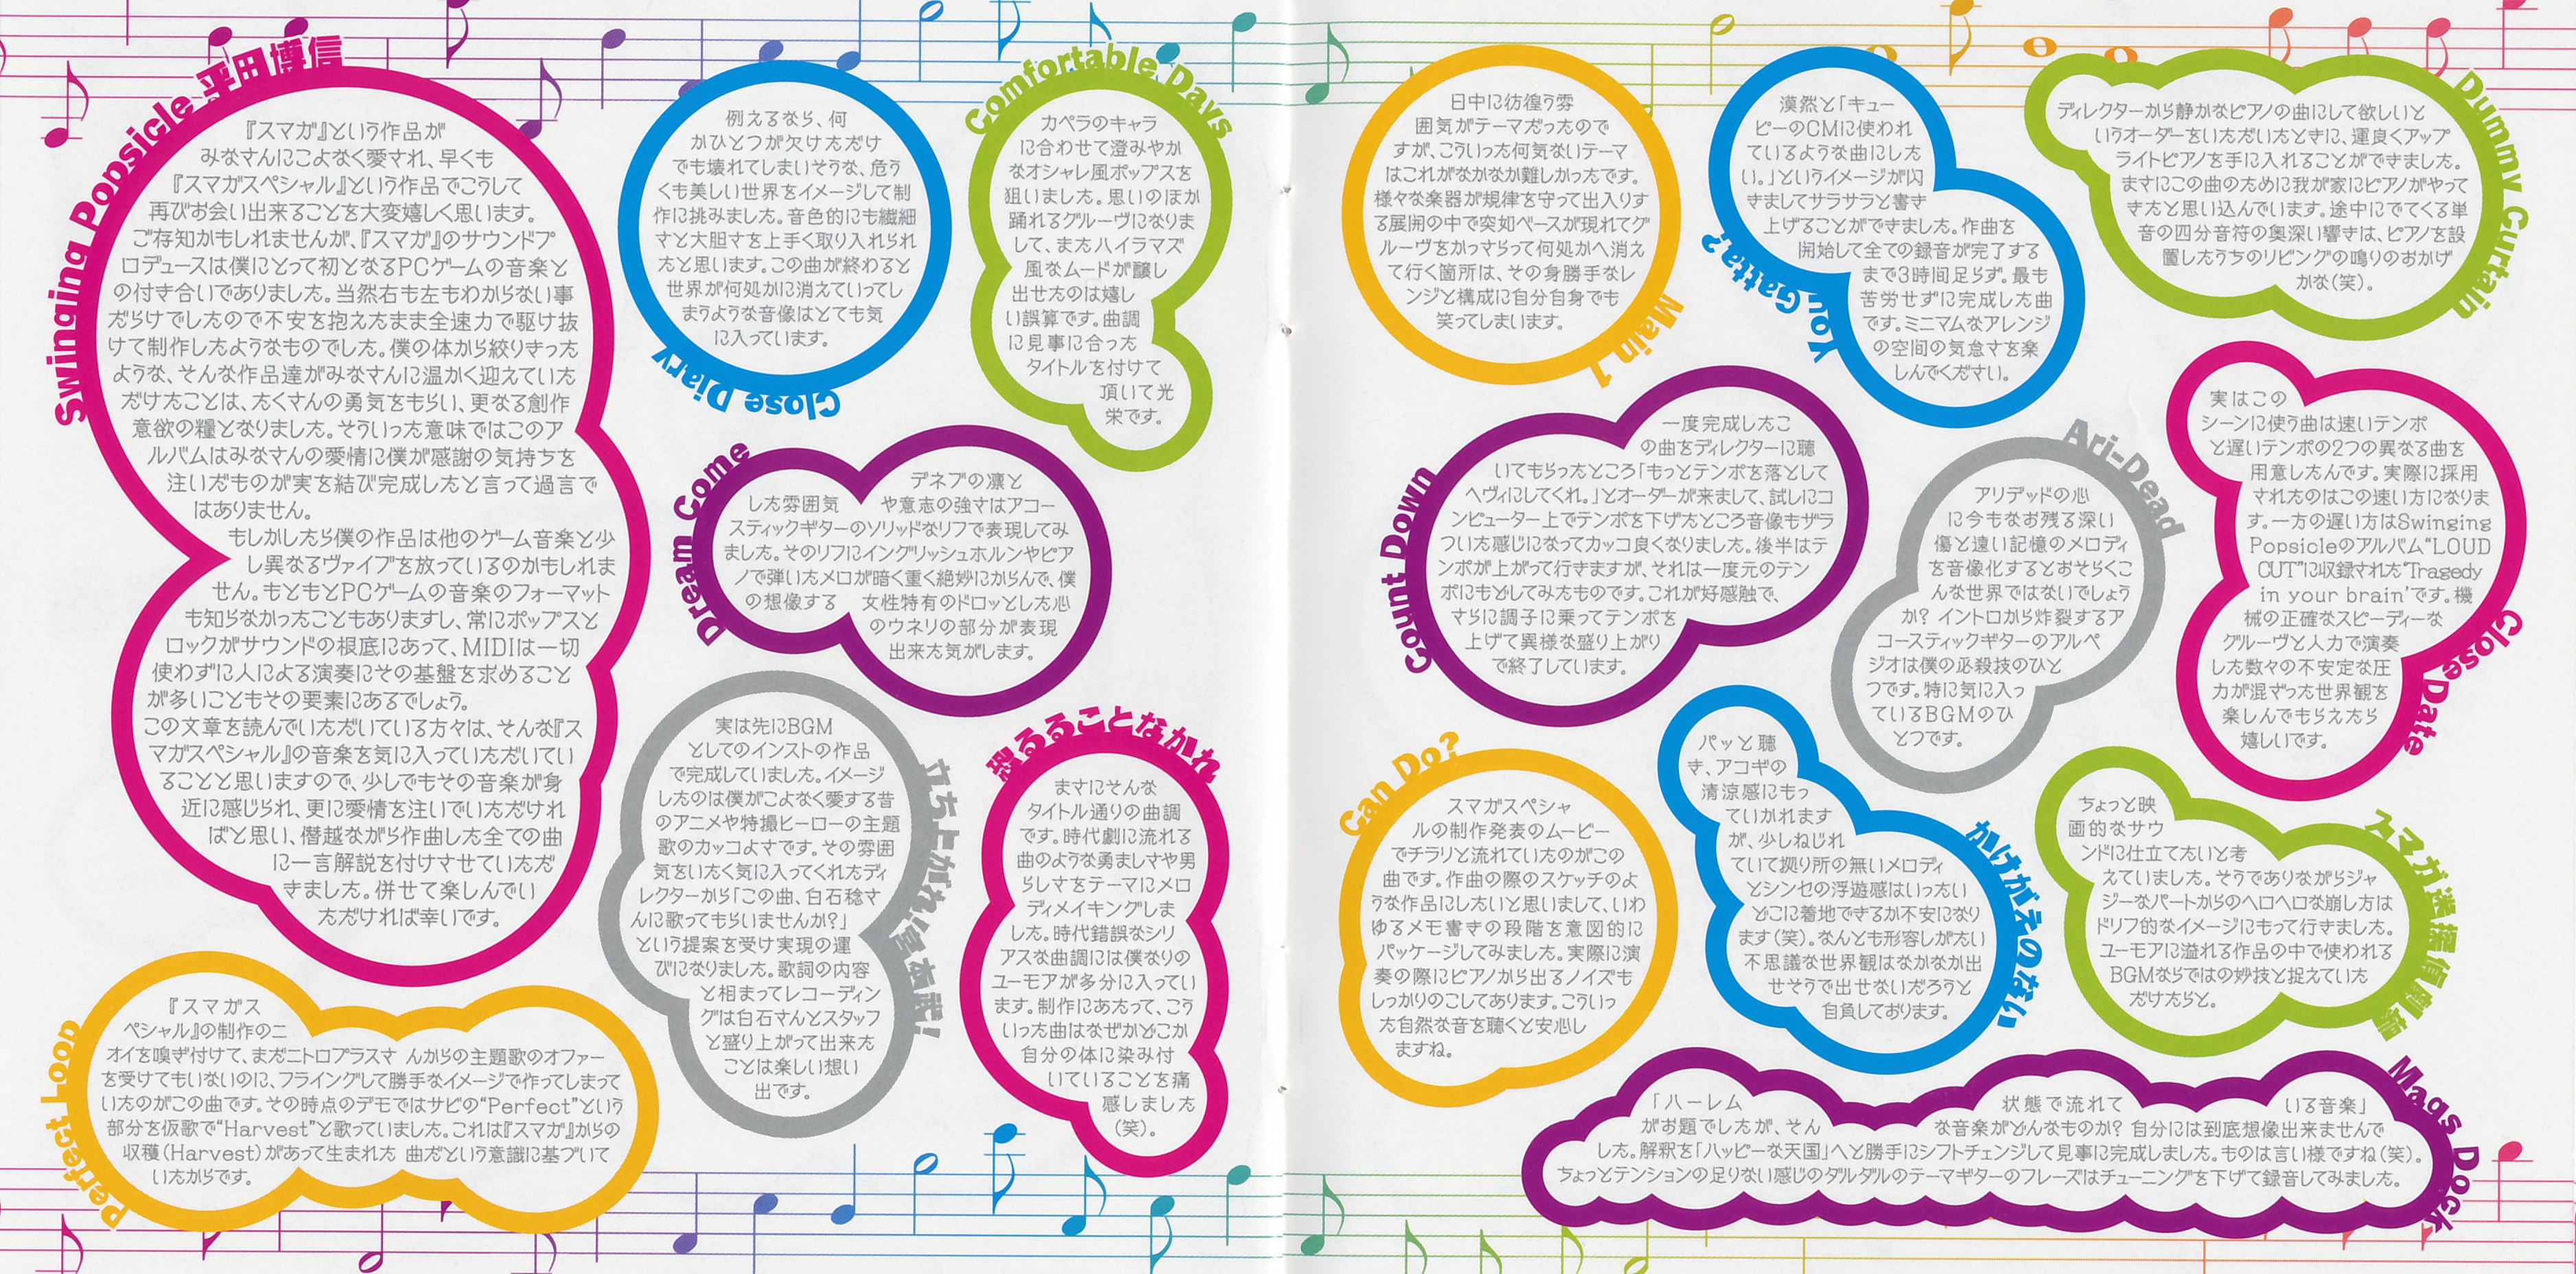 Swinging Popsicle 平田博信
『スマガ』という作品が
みなさんにこよなく愛され、早くも
『スマガスペシャル』という作品でこうして
再びお会い出来ることを大変嬉しく思います。
ご存知かもしれませんが、『スマガ』のサウンドプ
ロデュースは僕にとって初となるPCゲームの音楽と
の付き合いでありました。当然右も左もわからない事
だらけでしたので不安を抱えたまま全速力で駆け抜
けて制作したようなものでした。僕の体から絞りきった
ような、そんな作品達がみなさんに温かく迎えていた
だけたことは、たくさんの勇気をもらい、更なる創作
意欲の糧となりました。そういった意味ではこのア
ルバムはみなさんの愛情に僕が感謝の気持ちを
注いだものが実を結び完成したと言って過言で
はありません。
もしかしたら僕の作品は他のゲーム音楽と少
し異なるヴァイブを放っているのかもしれま
せん。もともとPCゲームの音楽のフォーマット
も知らなかったこともありますし、常にポップスと
ロックがサウンドの根底にあって、MIDIは一切
使わずに人による演奏にその基盤を求めること
が多いこともその要素にあるでしょう。
この文章を読んでいただいている方々は、そんな『ス
マガスペシャル』の音楽を気に入っていただいてい
ることと思いますので、少しでもその音楽が身
近に感じられ、更に愛情を注いでいただけれ
ばと思い、僭越ながら作曲した全ての曲
に一言解説を付けさせていただ
きました。併せて楽しんでい
ただければ幸いです。
Perfect Loop
『スマガス
ペシャル』の制作のニ
オイを嗅ぎ付けて、まだニトロプラスさ んからの主題歌のオファー
を受けてもいないのに、フライングして勝手なイメージで作ってしまって
いたのがこの曲です。その時点のデモではサビの“Perfect”という
部分を仮歌で“Harvest”と歌っていました。これは『スマガ』からの
収穫(Harvest)があって生まれた 曲だという意識に基づいて
いたからです。
Close Diary
例えるなら、何
かひとつが欠けただけ
でも壊れてしまいそうな、危う
くも美しい世界をイメージして制
作に挑みました。音色的にも繊細
さと大胆さを上手く取り入れられ
たと思います。この曲が終わると
世界が何処かに消えていってし
まうような音像はとても気
に入っています。
Comfortable Days
カペラのキャラ
に合わせて澄みやか
なオシャレ風ポップスを
狙いました。思いのほか
踊れるグルーヴになりま
して、またハイラマズ
風なムードが醸し
出せたのは嬉し
い誤算です。曲調
に見事に合った
タイトルを付けて
頂いて光
栄です。
Dream Come
デネブの凛と
した雰囲気 や意志の強さはアコー
スティックギターのソリッドなリフで表現してみ
ました。そのリフにイングリッシュホルンやピア
ノで弾いたメロが暗く重く絶妙にからんで、僕
の想像する 女性特有のドロッとした心
のウネリの部分が表現
出来た気がします。
立ち上がれ!宮本武!
実は先にBGM
としてのインストの作品
で完成していました。イメージ
したのは僕がこよなく愛する昔
のアニメや特撮ヒーローの主題
歌のカッコよさです。その雰囲
気をいたく気に入ってくれたディ
レクターから「この曲、白石稔さ
んに歌ってもらいませんか?」
という提案を受け実現の運
びになりました。歌詞の内容
と相まってレコーディン
グは白石さんとスタッフ
と盛り上がって出来た
ことは楽しい想い
出です。
恐るることなかれ
まさにそんな
タイトル通りの曲調
です。時代劇に流れる
曲のような勇ましさや男
らしさをテーマにメロ
ディメイキングしま
した。時代錯誤なシリ
アスな曲調には僕なりの
ユーモアが多分に入ってい
ます。制作にあたって、こう
いった曲はなぜかどこか
自分の体に染み付
いていることを痛
感しました
(笑)。
Main 1
日中に彷徨う雰
囲気がテーマだったので
すが、こういった何気ないテーマ
はこれがなかなか難しかったです。
様々な楽器が規律を守って出入りす
る展開の中で突如ベースが現れてグ
ルーヴをかっさらって何処かへ消え
て行く箇所は、その身勝手なレ
ンジと構成に自分自身でも
笑ってしまいます。
You Gatta?
漠然と「キュー
ピーのCMに使われ
ているような曲にした
い。」というイメージが閃
きましてサラサラと書き
上げることができました。作曲を
開始して全ての録音が完了する
まで3時間足らず。最も
苦労せずに完成した曲
です。ミニマムなアレンジ
の空間の気怠さを楽
しんでください。
Dummy Curtain
ディレクターから静かなピアノの曲にして欲しいと
いうオーダーをいただいたときに、運良くアップ
ライトピアノを手に入れることができました。
まさにこの曲のために我が家にピアノがやって
きたと思い込んでいます。途中にでてくる単
音の四分音符の奥深い響きは、ピアノを設
置したうちのリビングの鳴りのおかげ
かな(笑)。
Count Down
一度完成したこ
の曲をディレクターに聴
いてもらったところ「もっとテンポを落として
ヘヴィにしてくれ。」とオーダーが来まして、試しにコ
ンピューター上でテンポを下げたところ音像もザラ
ついた感じになってカッコ良くなりました。後半はテ
ンポが上がって行きますが、それは一度元のテン
ポにもどしてみたものです。これが好感触で、
さらに調子に乗ってテンポを
上げて異様な盛り上がり
で終了しています。
Ari-Dead
アリデッドの心
に今もなお残る深い
傷と遠い記憶のメロディ
を音像化するとおそらくこ
んな世界ではないでしょう
か? イントロから炸裂するア
コースティックギターのアルペ
ジオは僕の必殺技のひと
つです。特に気に入っ
ているBGMのひ
とつです。
Close Date
実はこの
シーンに使う曲は速いテンポ
と遅いテンポの2つの異なる曲を
用意したんです。実際に採用
されたのはこの速い方になりま
す。一方の遅い方はSwinging
Popsicleのアルバム“LOUD
CUT”に収録された“Tragedy
in your brain’です。機
械の正確なスピーディーな
グルーヴと人力で演奏
した数々の不安定な圧
力が混ざった世界観を
楽しんでもらえたら
嬉しいです。
Can Do?
スマガスペシャ
ルの制作発表のムービー
でチラリと流れていたのがこの
曲です。作曲の際のスケッチのよ
うな作品にしたいと思いまして、いわ
ゆるメモ書きの段階を意図的に
パッケージしてみました。実際に演
奏の際にピアノから出るノイズも
しっかりのこしてあります。こういっ
た自然な音を聴くと安心し
ますね。
かけがえのない
パッと聴
き、アコギの
清涼感にもっ
ていかれます
が、少しねじれ
ていて拠り所の無いメロディ
とシンセの浮遊感はいったい
どこに着地できるか不安になり
ます(笑)。なんとも形容しがたい
不思議な世界観はなかなか出
せそうで出せないだろうと
自負しております。
ちょっと映
画的なサウ
ンドに仕立てたいと考
えていました。そうでありながらジャ
ジーなパートからのヘロヘロな崩し方は
ドリフ的なイメージにもって行きました。
ユーモアに溢れる作品の中で使われる
BGMならではの妙技と捉えていた
だけたらと。
Mags Dock
「ハーレム 状態で流れて いる音楽」
がお題でしたが、そん な音楽がどんなものか? 自分には到底想像出来ませんで
した。解釈を「ハッピーな天国」へと勝手にシフトチェンジして見事に完成しました。ものは言い様ですね(笑)。
ちょっとテンションの足りない感じのダルダルのテーマギターのフレーズはチューニングを下げて録音してみました。